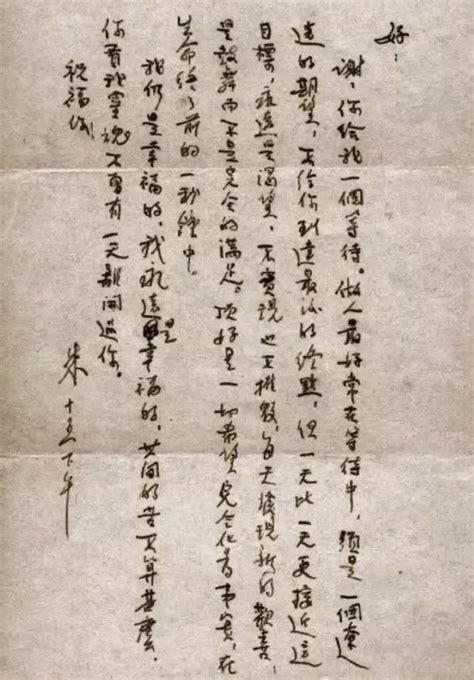 好：
謝，你给我一個等待。做人最好常在等待中，须是一個遼
遠的期望，不给你到達最後的终點，但一天比一天更接近這
目標，永遠是渴望，不實現也不摧毀，每天發現新的歡喜，
是鼓舞而不是完全的满足。頂好是一切希望完全化為事實，在
生命终了前的一秒鐘中。
我们是幸福的，我永遠是幸福的，世間的苦不算甚麼，
你看我靈魂不曾有一天離開過你。
祝福你
朱 十五下午